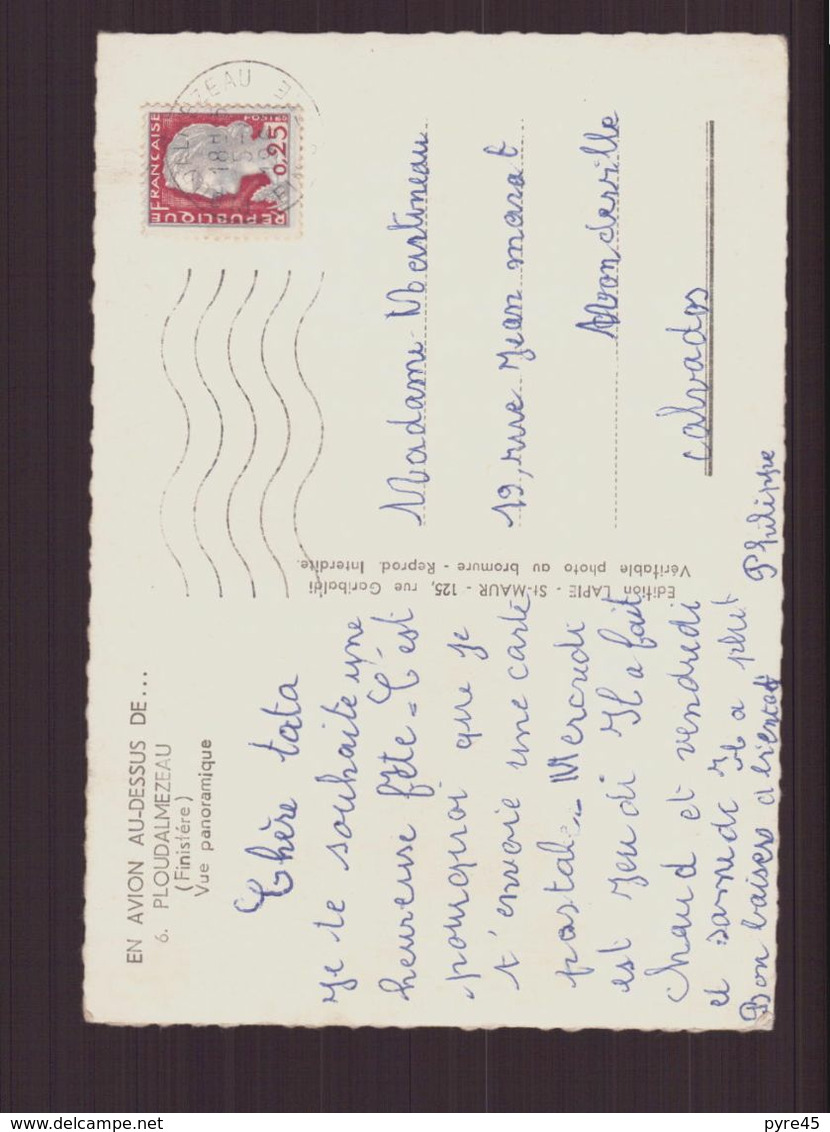 EN AVION AU-DESSUS DE...
6. PLOUDALMEZEAU
(Finistére)
Vue panoramique
Chère tata
je te souhaite une
heureuse fête - C'est
pourquoi que je
t'envoie une carte
postale - Mercredi
est jeudi Il a fait
chaud et vendredi
et samedi Il a plut
Bon baisers
Philippe
Edition LAPIE - St-MAUR - 125, rue Garibaldi
Véritable photo au bromure - Reprod. Interdite.
REPUBLIQUE FRANCAISE
POSTES
0,25
18H
Madame Martineau
19, rue Jean marat
Mondeville
calvados
www.delcampe.net
pyre45